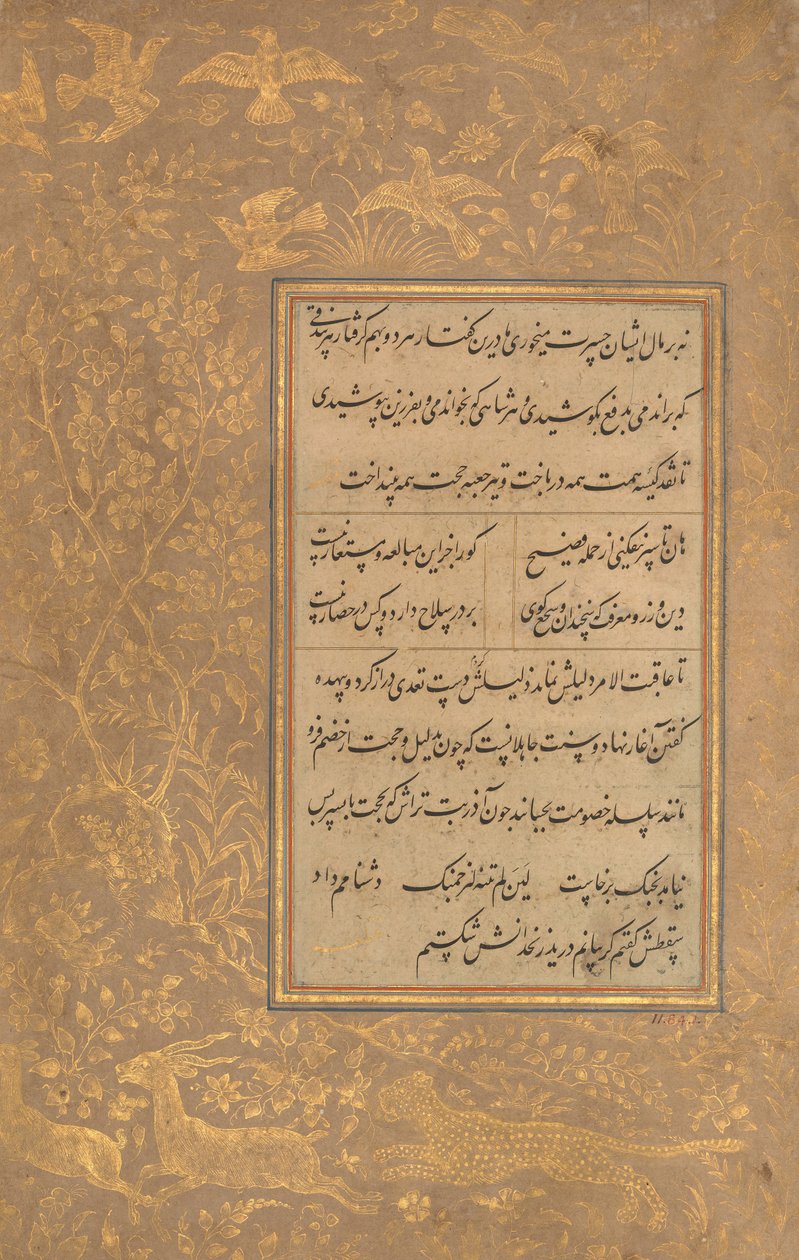 نه بر مال ایشان حسرت میخوری ما درین گفتار هر دو بهم گرفتار هر بیدقی
که براندمی بدفع بکوشیدی و هر شاهی که بخواندمی و بفرزین بپوشیدی
تا نقد کیسه همت همه درباخت و تیر جعبه حجت همه بینداخت
هان تا سپر نیفکنی از حمله فصیح
کورا جز این مبالغه و مستعار نیست
دین ورز و معرفت که سخندان سجع گوی
بر در سلاح دارد و کس در حصار نیست
تا عاقبت الامر دلیلش نماند ذلیلش کردم دست تعدی دراز کرد و بیهده
گفتن آغاز نهاد و سنت جاهلانست که چون بدلیل و حجت از خصم فرو
مانند سلسله خصومت بجنبانند چون آذر بت تراش که بحجت با پسر بس
نیامد بجنگ برخاست لئن لم تنته لارجمنک دشنامم داد
سقطش گفتم گریبانم درید زنخدانش شکستم
11.84.1.